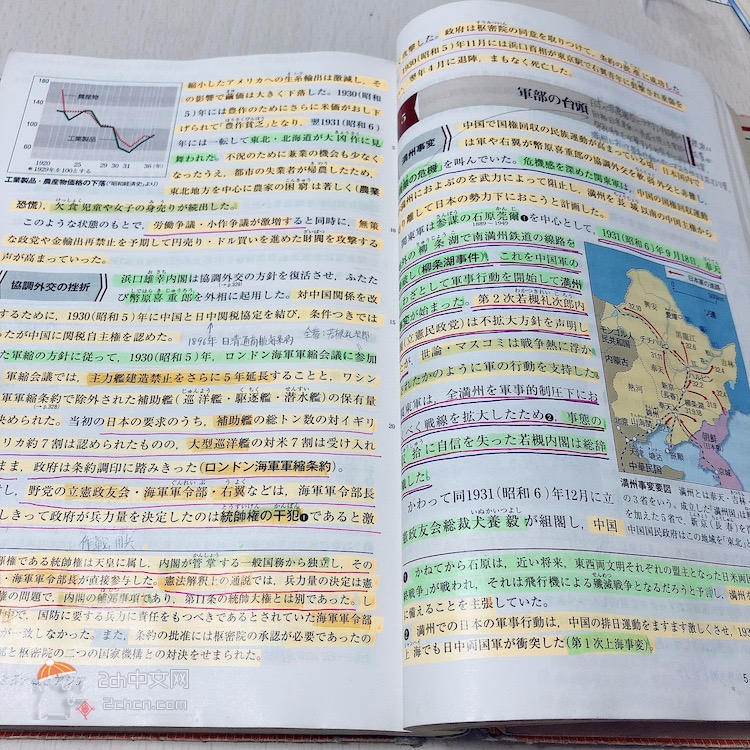 180
160
140
120
100
80
60
40
農産物
工業製品
1920
25
29
30 31
36(年)
*1929年を100とする
工業製品・農産物価格の下落
縮小したアメリカへの生糸輸出は激減し、そ
の影響で繭価は大きく下落した。1930(昭和
5)年には豊作のためにさらに米価がおし下
げられて「豊作貧乏」となり、翌1931(昭和6)
年には一転して東北・北海道が大凶作に見
舞われた。不況のために兼業の機会も少なく
なったうえ、都市の失業者が帰農したため、
東北地方を中心に農家の困窮は著しく(農業
恐慌)、欠食児童や女子の身売りが続出した。
このような状態のもとで、労働争議・小作争議が激増すると同時に、無策
な政党や金輸出再禁止を予期して円売り・ドル買いを進めた財閥を攻撃する
声が高まっていった。
協調外交の挫折
浜口雄幸内閣は協調外交の方針を復活させ、ふたた
び幣原喜重郎を外相に起用した。対中国関係を改
するために、1930(昭和5)年に中国と日中関税協定を結び、条件つきでは
ったが中国に関税自主権を認めた。
た軍縮の方針に従って、1930(昭和5)年、ロンドン海軍軍縮会議に参加
軍縮会議では、主力艦建造禁止をさらに5年延長することと、ワシン
軍縮条約で除外された補助艦(巡洋艦・駆逐艦・潜水艦)の保有量
決められた。当初の日本の要求のうち、補助艦の総トン数の対イギリ
リカ約7割は認められたものの、大型巡洋艦の対米7割は受け入れ
まま、政府は条約調印に踏みきった(ロンドン海軍軍縮条約)。
し、野党の立憲政友会・海軍軍令部・右翼などは、海軍軍令部長
しきって政府が兵力量を決定したのは統帥権の干犯❶であると激
権である統帥権は天皇に属し、内閣が管掌する一般国務から独立し、その
・海軍軍令部長が直接参与した。憲法解釈上の通説では、兵力量の決定は憲
権の問題で、内閣の輔弼事項であり、第11条の統帥大権とは別であった。し
で、国防に要する兵力に責任をもつべきであるとされていた海軍軍令部
が一致しなかった。また、条約の批准には枢密院の承認が必要であったの
と枢密院の二つの国家機構との対決をせまられた。
2ch中文网
2chcn.com
攻撃した。政府は枢密院の同意を取りつけて、条約の批准に成功した
1930(昭和5)年11月には浜口首相が東京駅で右翼青年に狙撃されて重傷を
い、翌年4月に退陣、まもなく死亡した。
5
軍部の台頭
満州事変
中国で国権回収の民族運動が高まっている頃、日本国内で
は軍や右翼が幣原喜重郎の協調外交を軟弱外交と非難し、
の危機」を叫んでいた。危機感を深めた関東軍は、中国の国権回収運動
満州におよぶのを武力によって阻止し、満州を長城以南の中国主権から
離して日本の勢力下におこうと計画した。
関東軍は参謀の石原莞爾❶を中心として、
1931(昭和6)年9月18日、奉天
外の柳条湖で南満州鉄道の線路を
(柳条湖事件)、これを中国軍の
わざとして軍事行動を開始して満州
変が始まった。第2次若槻礼次郎内
(立憲民政党)は不拡大方針を声明し
が、世論・マスコミは戦争熱に浮か
れたかのように軍の行動を支持した
東軍は、全満州を軍事的制圧下にお
べく戦線を拡大したため❷、事態の
拾に自信を失った若槻内閣は総辞
した。
かわって同1931(昭和6)年12月に立
憲政友会総裁犬養毅が組閣し、中国
日本軍の進路
モンゴル人
民共和国
内蒙古
興安
黒龍江
チチハル
ハルビン
吉林
新京
熱河
奉天
山海関
中華民国
朝鮮
(日本)
京城
満州事変要図
❶ かねてから石原は、近い将来、東西両文明それぞれの盟主となった日米両国
終戦争」が戦われ、それは飛行機による殲滅戦争となるだろうと予測し、満州を
に備えることを主張していた。
❷ 満州での日本の軍事行動は、中国の排日運動をますます激しくさせ、193
上海でも日中両国軍が衝突した(第1次上海事変)。